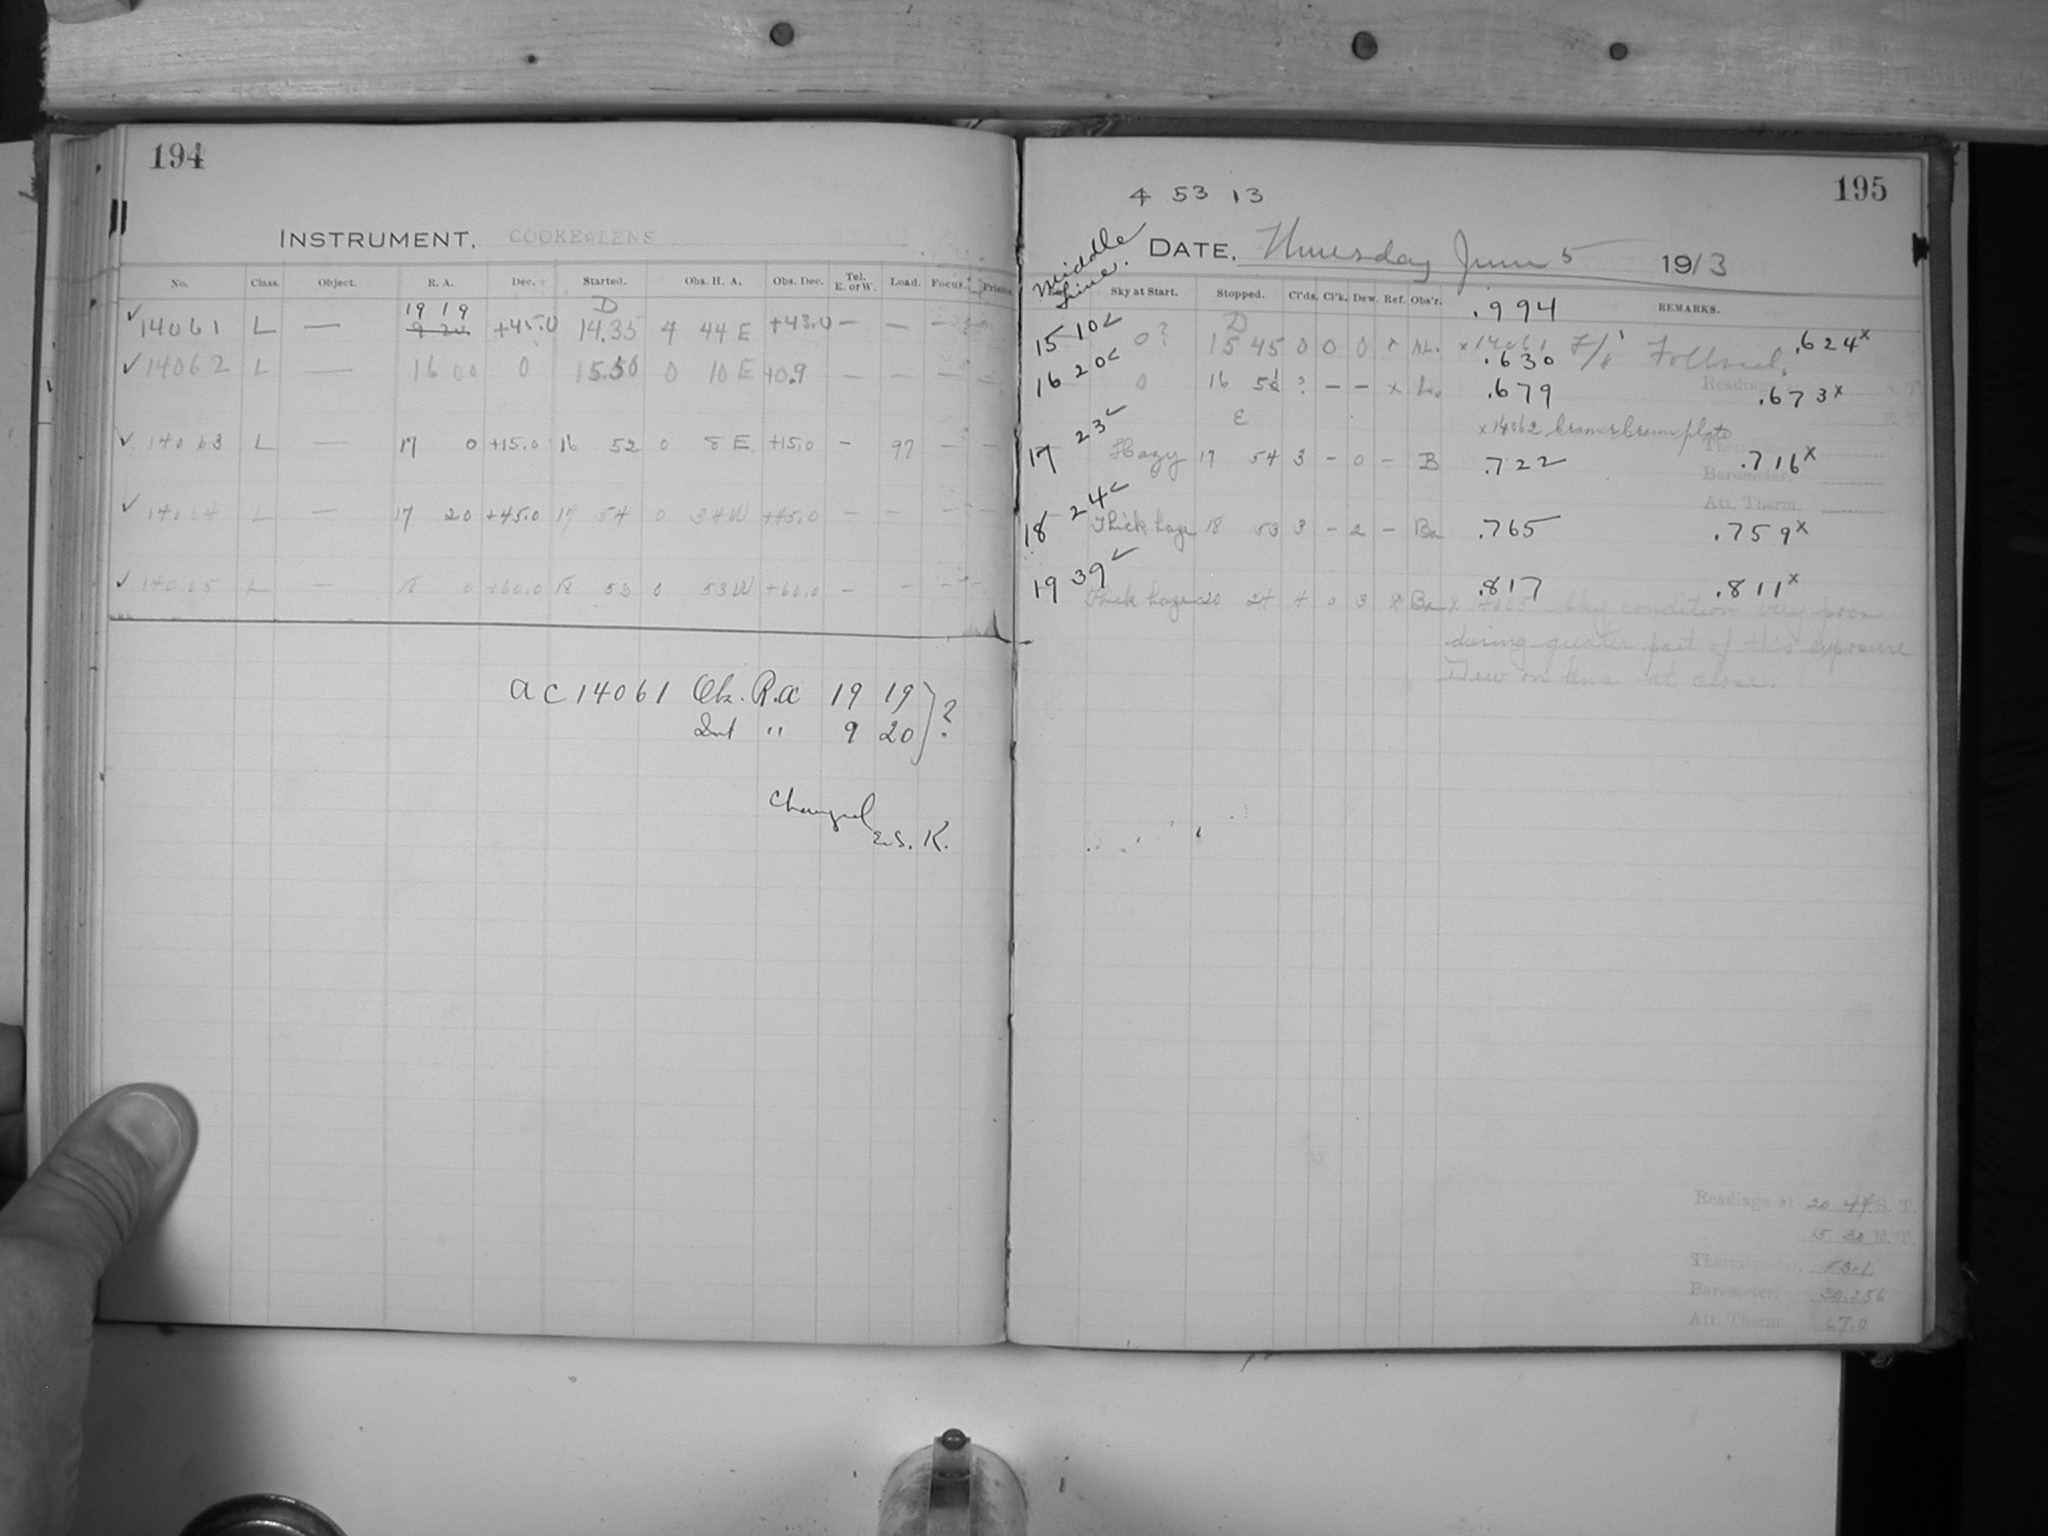 194
INSTRUMENT, COOKE LENS
No. Class. Object. R. A. Dec. Started. Obs. H. A. Obs. Dec. Tel. E. or W. Load. Focus. Prisms.
19 19 D
✓ 14061 L — 9 20 +45.0 14.35 4 44 E +43.0 — — — —
✓ 14062 L — 16 00 0 15.50 0 10 E +0.9 — — — —
✓ 14063 L — 17 0 +15.0 16 52 0 8 E +15.0 — 97 — —
✓ 14064 L — 17 20 +45.0 17 54 0 34 W +45.0 — — — —
✓ 14065 L — 18 0 +60.0 18 53 0 53 W +60.0 — — — —
AC 14061 Ob. R.A 19 19 } ?
Int " 9 20
Changed
E.S.K.
195
4 53 13
DATE, Thursday June 5 1913
Middle
Time.
Sky at Start. Stopped. Cl'ds. Cl'k. Dew. Ref. Obs'r. REMARKS.
.994
D
15 10 ✓ 0? 15 45 0 0 0 x x 14061 .624x
.630
16 20 ✓ 0 16 ? — — x .679 .673x
E
x 14062 Cramer Crown plate
17 23 ✓ Hazy 17 54 3 — 0 — B .722 .716x
18 24 ✓ Thick haze 18 53 3 — 2 — Ba .765 .759x
19 39 ✓ Thick haze 20 24 4 0 3 x Ba .817 .811x
x 14065 Sky condition very poor
during greater part of this exposure
Dew on lens at close.
Readings at S. T.
E. T.
Thermometer.
Barometer.
Att. Therm.
Readings at 20 44 S. T.
15 50 E. T.
Thermometer. 53.1
Barometer. 30.256
Att. Therm. 67.0